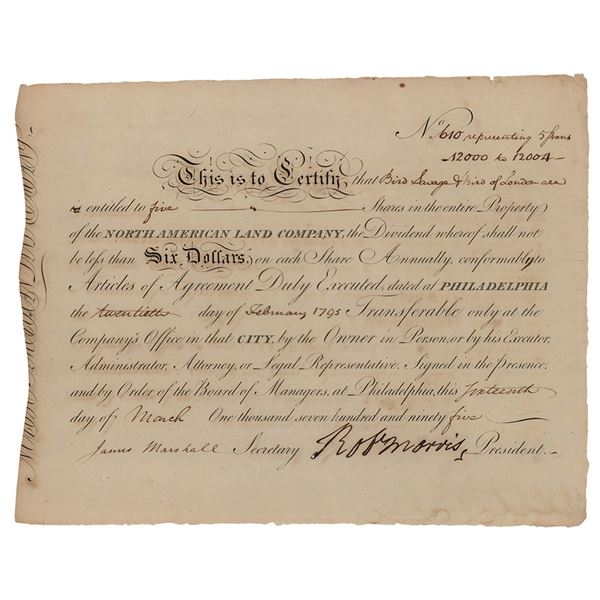 No 610 representing 5 shares
12000 to 12004
This is to Certify, that Bird Savage & Bird of London are
entitled to five Shares in the entire Property
of the NORTH AMERICAN LAND COMPANY, the Dividend whereof shall not
be less than Six Dollars, on each Share Annually, conformably to
Articles of Agreement Duly Executed, dated at PHILADELPHIA
the twentieth day of February 1795 Transferable only at the
Company's Office in that CITY, by the Owner in Person, or by his Executor,
Administrator, Attorney, or Legal Representative. Signed in the presence,
and by Order of the Board of Managers, at Philadelphia, this sixteenth
day of March One thousand seven hundred and ninety five
James Marshall Secretary Rob Morris, President.